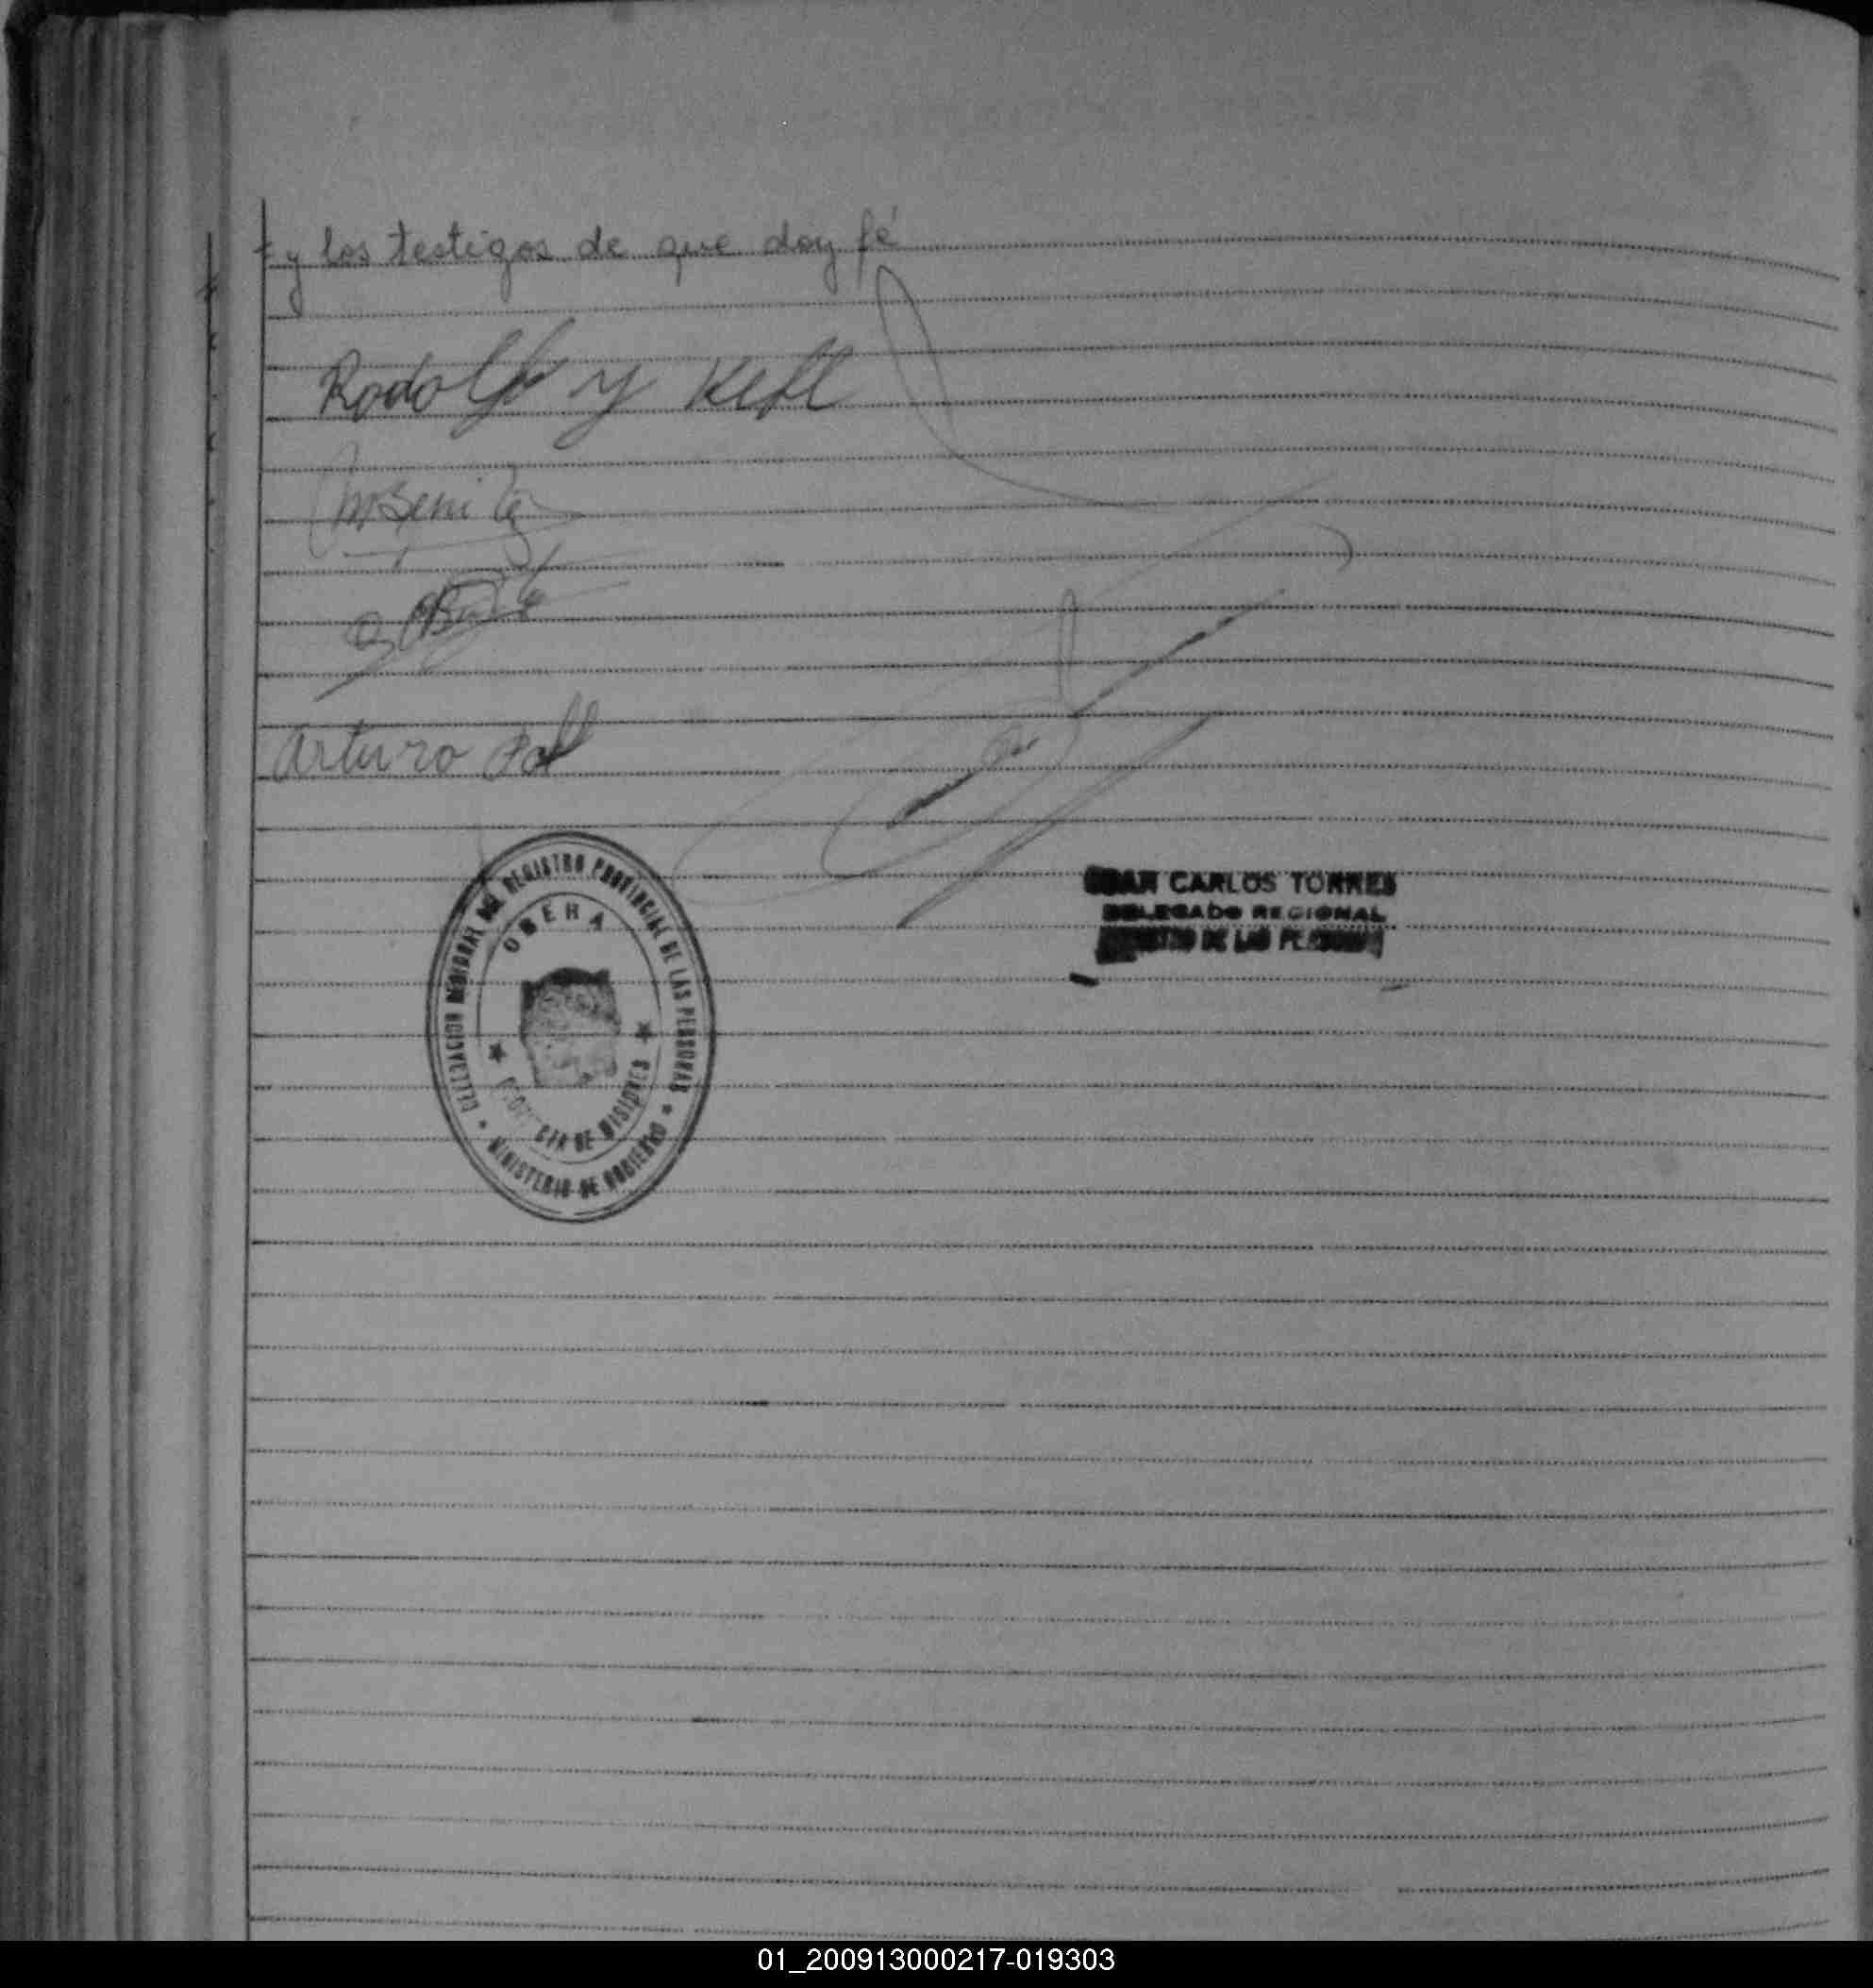 y los testigos de que doy fé
Rodolfo y Kefl
M Benitez
Arturo
DELEGACION REGIONAL DEL REGISTRO PROVINCIAL DE LAS PERSONAS
OBERA
PROVINCIA DE MISIONES
MINISTERIO DE GOBIERNO
CARLOS TORRES
DELEGADO REGIONAL
REGISTRO DE LAS PERSONAS
01_200913000217-019303